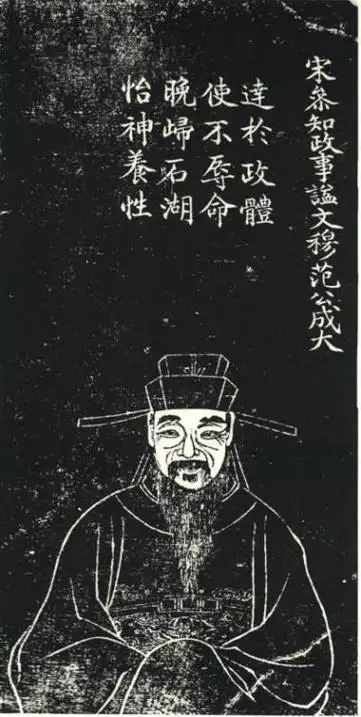 宋叅知政事諡文穆范公成大
達於政體
使不辱命
晚歸石湖
怡神養性